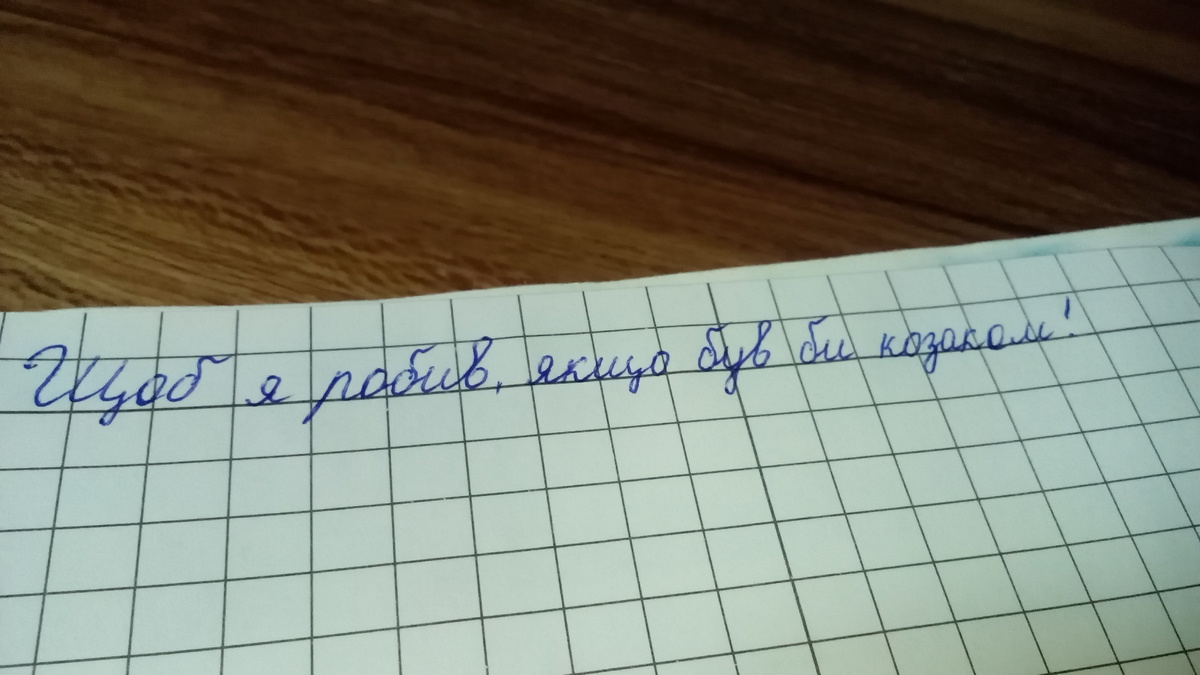 Щоб я робив, якщо був би козаком!